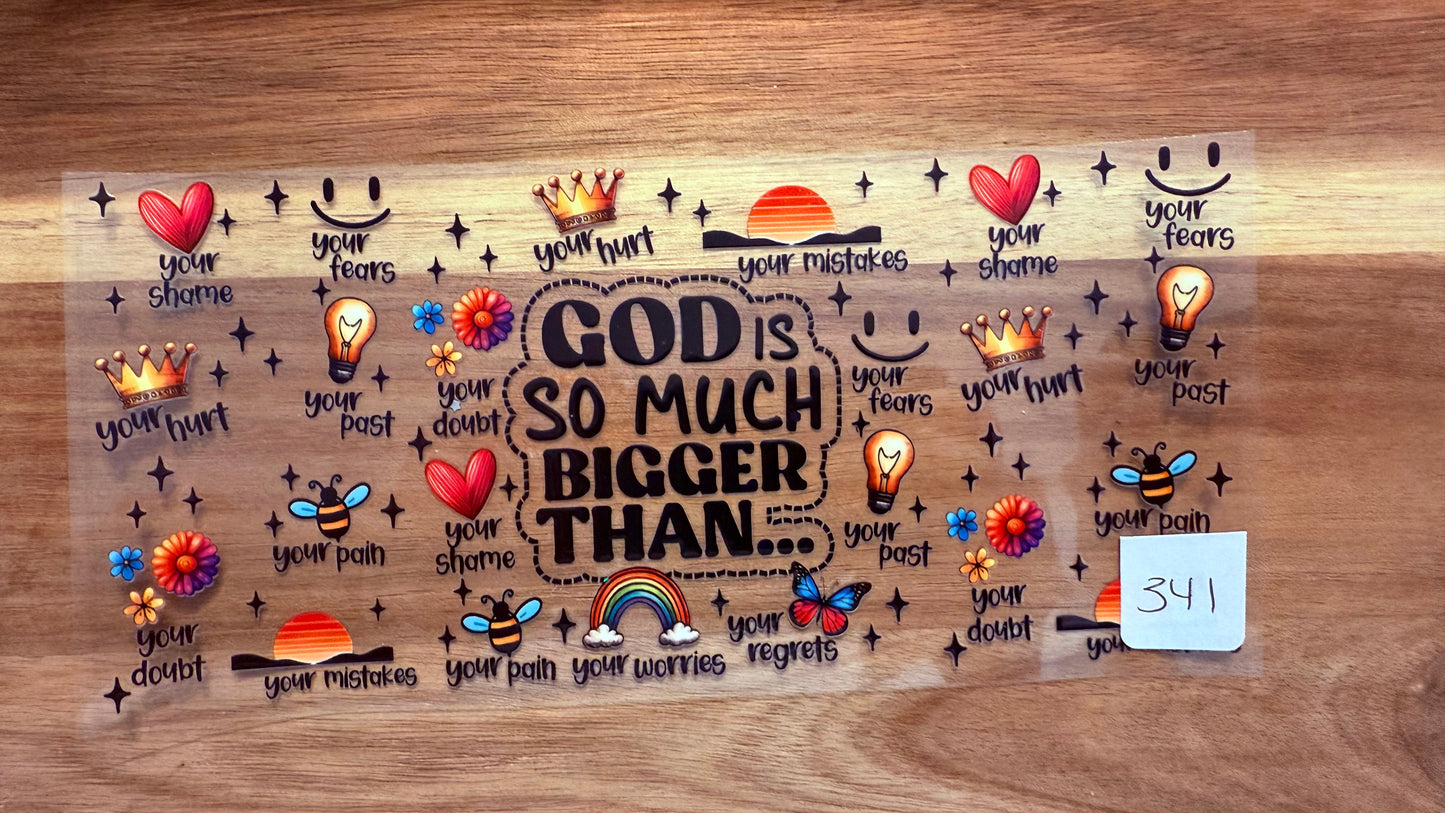 your
shame
your
fears
your hurt
your mistakes
your
shame
your
fears
your hurt
your
past
your
doubt
GOD IS
SO MUCH
BIGGER
THAN...
your
fears
your hurt
your
past
your
doubt
your pain
your
shame
your
past
your
doubt
your pain
your mistakes
your pain
your worries
your
regrets
341